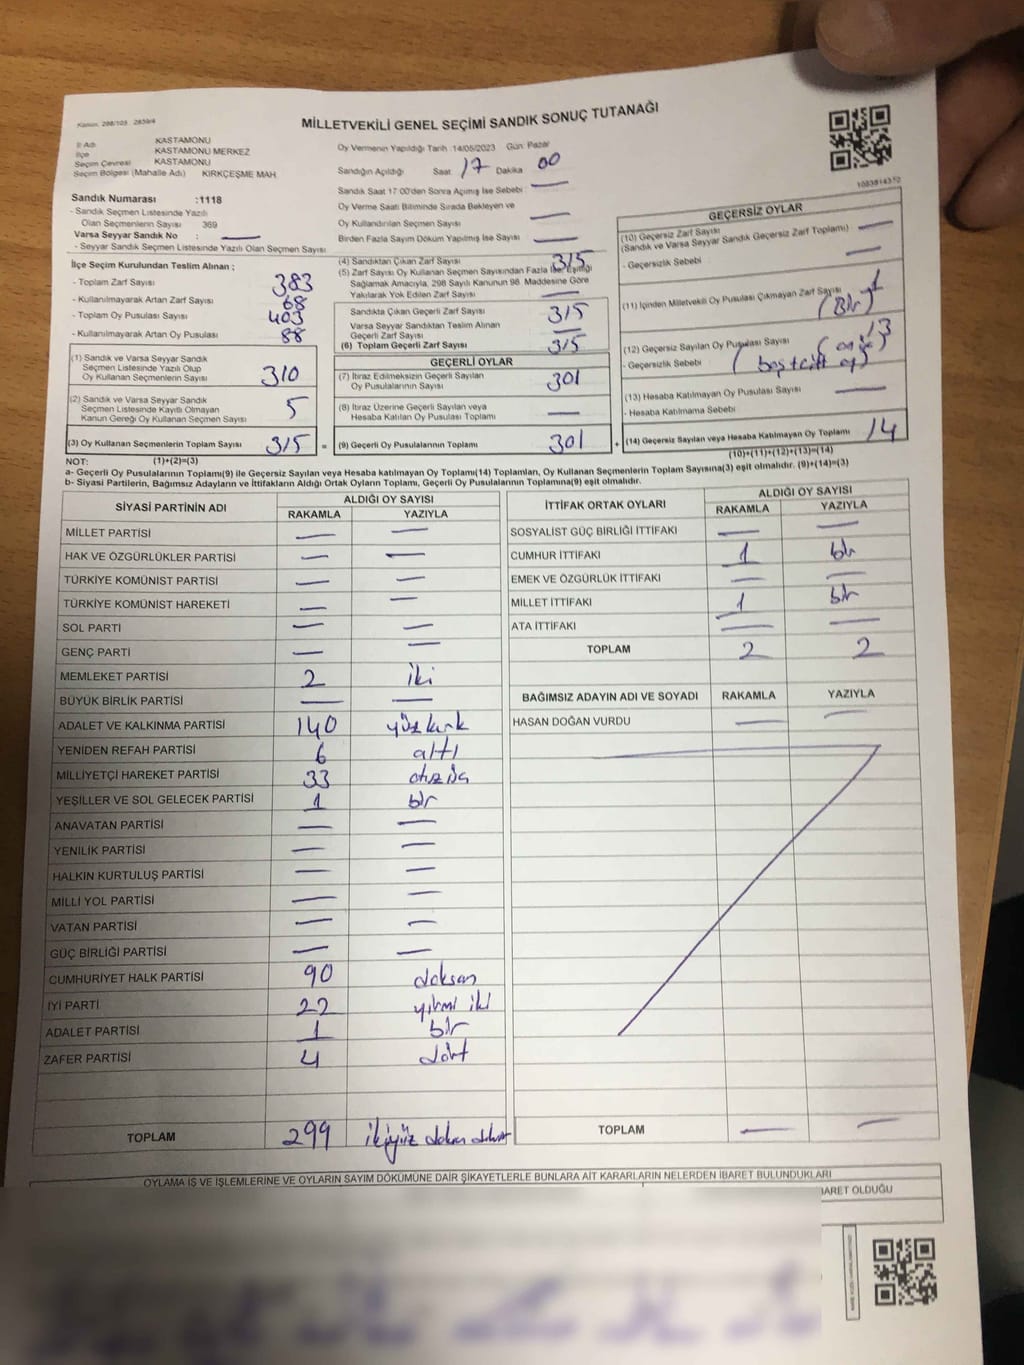 Kanun: 298/105 2839/4
MİLLETVEKİLİ GENEL SEÇİMİ SANDIK SONUÇ TUTANAĞI
İl Adı KASTAMONU
İlçe KASTAMONU MERKEZ
Seçim Çevresi KASTAMONU
Seçim Bölgesi (Mahalle Adı) KIRKÇEŞME MAH.
Sandık Numarası :1118
- Sandık Seçmen Listesinde Yazılı
Olan Seçmenlerin Sayısı 369
Varsa Seyyar Sandık No : —
- Seyyar Sandık Seçmen Listesinde Yazılı Olan Seçmen Sayısı
Oy Vermenin Yapıldığı Tarih 14/05/2023 Gün: Pazar
Sandığın Açıldığı Saat 17 Dakika 00
Sandık Saat 17:00'den Sonra Açılmış İse Sebebi : —
Oy Verme Saati Bitiminde Sırada Bekleyen ve
Oy Kullandırılan Seçmen Sayısı —
Birden Fazla Sayım Döküm Yapılmış İse Sayısı —
İlçe Seçim Kurulundan Teslim Alınan ;
- Toplam Zarf Sayısı 383
- Kullanılmayarak Artan Zarf Sayısı 68
- Toplam Oy Pusulası Sayısı 403
- Kullanılmayarak Artan Oy Pusulası 88
(1) Sandık ve Varsa Seyyar Sandık
Seçmen Listesinde Yazılı Olup
Oy Kullanan Seçmenlerin Sayısı 310
(2) Sandık ve Varsa Seyyar Sandık
Seçmen Listesinde Kayıtlı Olmayan
Kanun Gereği Oy Kullanan Seçmen Sayısı 5
(3) Oy Kullanan Seçmenlerin Toplam Sayısı 315 =
(4) Sandıktan Çıkan Zarf Sayısı 315
(5) Zarf Sayısı Oy Kullanan Seçmen Sayısından Fazla İse, Eşitliği
Sağlamak Amacıyla, 298 Sayılı Kanunun 98. Maddesine Göre
Yakılarak Yok Edilen Zarf Sayısı —
Sandıkta Çıkan Geçerli Zarf Sayısı 315
Varsa Seyyar Sandıktan Teslim Alınan
Geçerli Zarf Sayısı —
(6) Toplam Geçerli Zarf Sayısı 315
GEÇERLİ OYLAR
(7) İtiraz Edilmeksizin Geçerli Sayılan
Oy Pusulalarının Sayısı 301
(8) İtiraz Üzerine Geçerli Sayılan veya
Hesaba Katılan Oy Pusulaları Toplamı —
(9) Geçerli Oy Pusulalarının Toplamı 301 +
1083814372
GEÇERSİZ OYLAR
(10) Geçersiz Zarf Sayısı
(Sandık ve Varsa Seyyar Sandık Geçersiz Zarf Toplamı) —
- Geçersizlik Sebebi —
(11) İçinden Milletvekili Oy Pusulası Çıkmayan Zarf Sayısı (Bir) 1
(12) Geçersiz Sayılan Oy Pusulası Sayısı 13
- Geçersizlik Sebebi
(13) Hesaba Katılmayan Oy Pusulası Sayısı —
- Hesaba Katılmama Sebebi
(14) Geçersiz Sayılan veya Hesaba Katılmayan Oy Toplamı 14
NOT: (1)+(2)=(3) (10)+(11)+(12)+(13)=(14)
a- Geçerli Oy Pusulalarının Toplamı(9) ile Geçersiz Sayılan veya Hesaba katılmayan Oy Toplamı(14) Toplamları, Oy Kullanan Seçmenlerin Toplam Sayısına(3) eşit olmalıdır. (9)+(14)=(3)
b- Siyasi Partilerin, Bağımsız Adayların ve İttifakların Aldığı Ortak Oyların Toplamı, Geçerli Oy Pusulalarının Toplamına(9) eşit olmalıdır.
SİYASİ PARTİNİN ADI ALDIĞI OY SAYISI
RAKAMLA YAZIYLA
MİLLET PARTİSİ — —
HAK VE ÖZGÜRLÜKLER PARTİSİ — —
TÜRKİYE KOMÜNİST PARTİSİ — —
TÜRKİYE KOMÜNİST HAREKETİ — —
SOL PARTİ — —
GENÇ PARTİ — —
MEMLEKET PARTİSİ 2 iki
BÜYÜK BİRLİK PARTİSİ — —
ADALET VE KALKINMA PARTİSİ 140 yüzkırk
YENİDEN REFAH PARTİSİ 6 altı
MİLLİYETÇİ HAREKET PARTİSİ 33 otuzüç
YEŞİLLER VE SOL GELECEK PARTİSİ 1 bir
ANAVATAN PARTİSİ — —
YENİLİK PARTİSİ — —
HALKIN KURTULUŞ PARTİSİ — —
MİLLİ YOL PARTİSİ — —
VATAN PARTİSİ — —
GÜÇ BİRLİĞİ PARTİSİ — —
CUMHURİYET HALK PARTİSİ 90 doksan
İYİ PARTİ 22 yirmi iki
ADALET PARTİSİ 1 bir
ZAFER PARTİSİ 4 dört
TOPLAM 299 ikiyüz doksan dokuz
İTTİFAK ORTAK OYLARI ALDIĞI OY SAYISI
RAKAMLA YAZIYLA
SOSYALİST GÜÇ BİRLİĞİ İTTİFAKI — —
CUMHUR İTTİFAKI 1 bir
EMEK VE ÖZGÜRLÜK İTTİFAKI — —
MİLLET İTTİFAKI 1 bir
ATA İTTİFAKI — —
TOPLAM 2 2
BAĞIMSIZ ADAYIN ADI VE SOYADI RAKAMLA YAZIYLA
HASAN DOĞAN VURDU — —
TOPLAM — —
OYLAMA İŞ VE İŞLEMLERİNE VE OYLARIN SAYIM DÖKÜMÜNE DAİR ŞİKAYETLERLE BUNLARA AİT KARARLARIN NELERDEN İBARET BULUNDUKLARI
BARET OLDUĞU